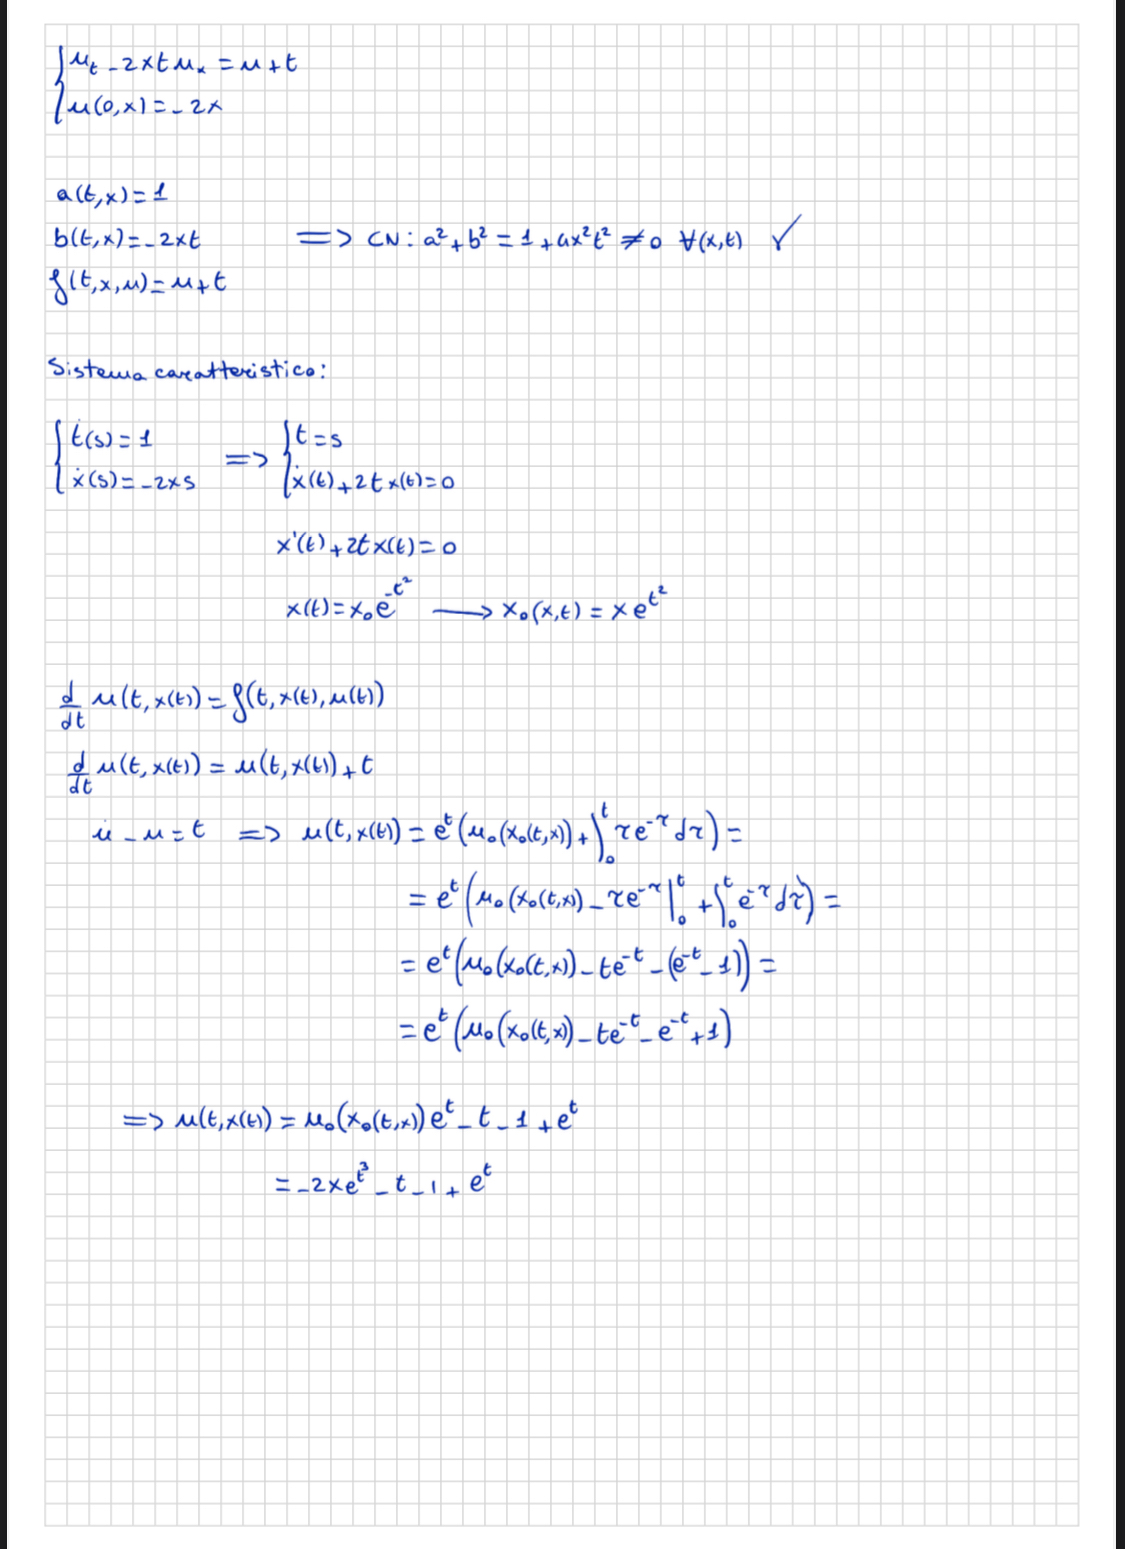 { u_t - 2xt u_x = u + t
{ u(0,x) = -2x
a(t,x) = 1
b(t,x) = -2xt => CN: a² + b² = 1 + 4x²t² ≠ 0 ∀(x,t) ✓
f(t,x,u) = u + t
Sistema caratteristico:
{ ṫ(s) = 1 => { t = s
{ ẋ(s) = -2xs { ẋ(t) + 2t x(t) = 0
x'(t) + 2t x(t) = 0
x(t) = x₀ e^{-t²} ⟶ x₀(x,t) = x e^{t²}
d/dt u(t,x(t)) = f(t,x(t),u(t))
d/dt u(t,x(t)) = u(t,x(t)) + t
u̇ - u = t => u(t,x(t)) = e^t (u₀(x₀(t,x)) + ∫₀^t τe^{-τ} dτ) =
= e^t (u₀(x₀(t,x)) - τe^{-τ} |₀^t + ∫₀^t e^{-τ} dτ) =
= e^t (u₀(x₀(t,x)) - te^{-t} - (e^{-t} - 1)) =
= e^t (u₀(x₀(t,x)) - te^{-t} - e^{-t} + 1)
=> u(t,x(t)) = u₀(x₀(t,x)) e^t - t - 1 + e^t
= -2xe^{t³} - t - 1 + e^t